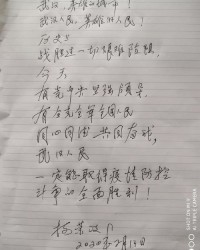 武汉，英雄的城市！
武汉人民，英雄的人民！
历史上
战胜过一切艰难险阻，
今天
有党中央坚强领导，
有合全军全国人民
同心同德 共同奋战，
武汉人民
一定能取得疫情防控
斗争的全面胜利！
2020年2月14日